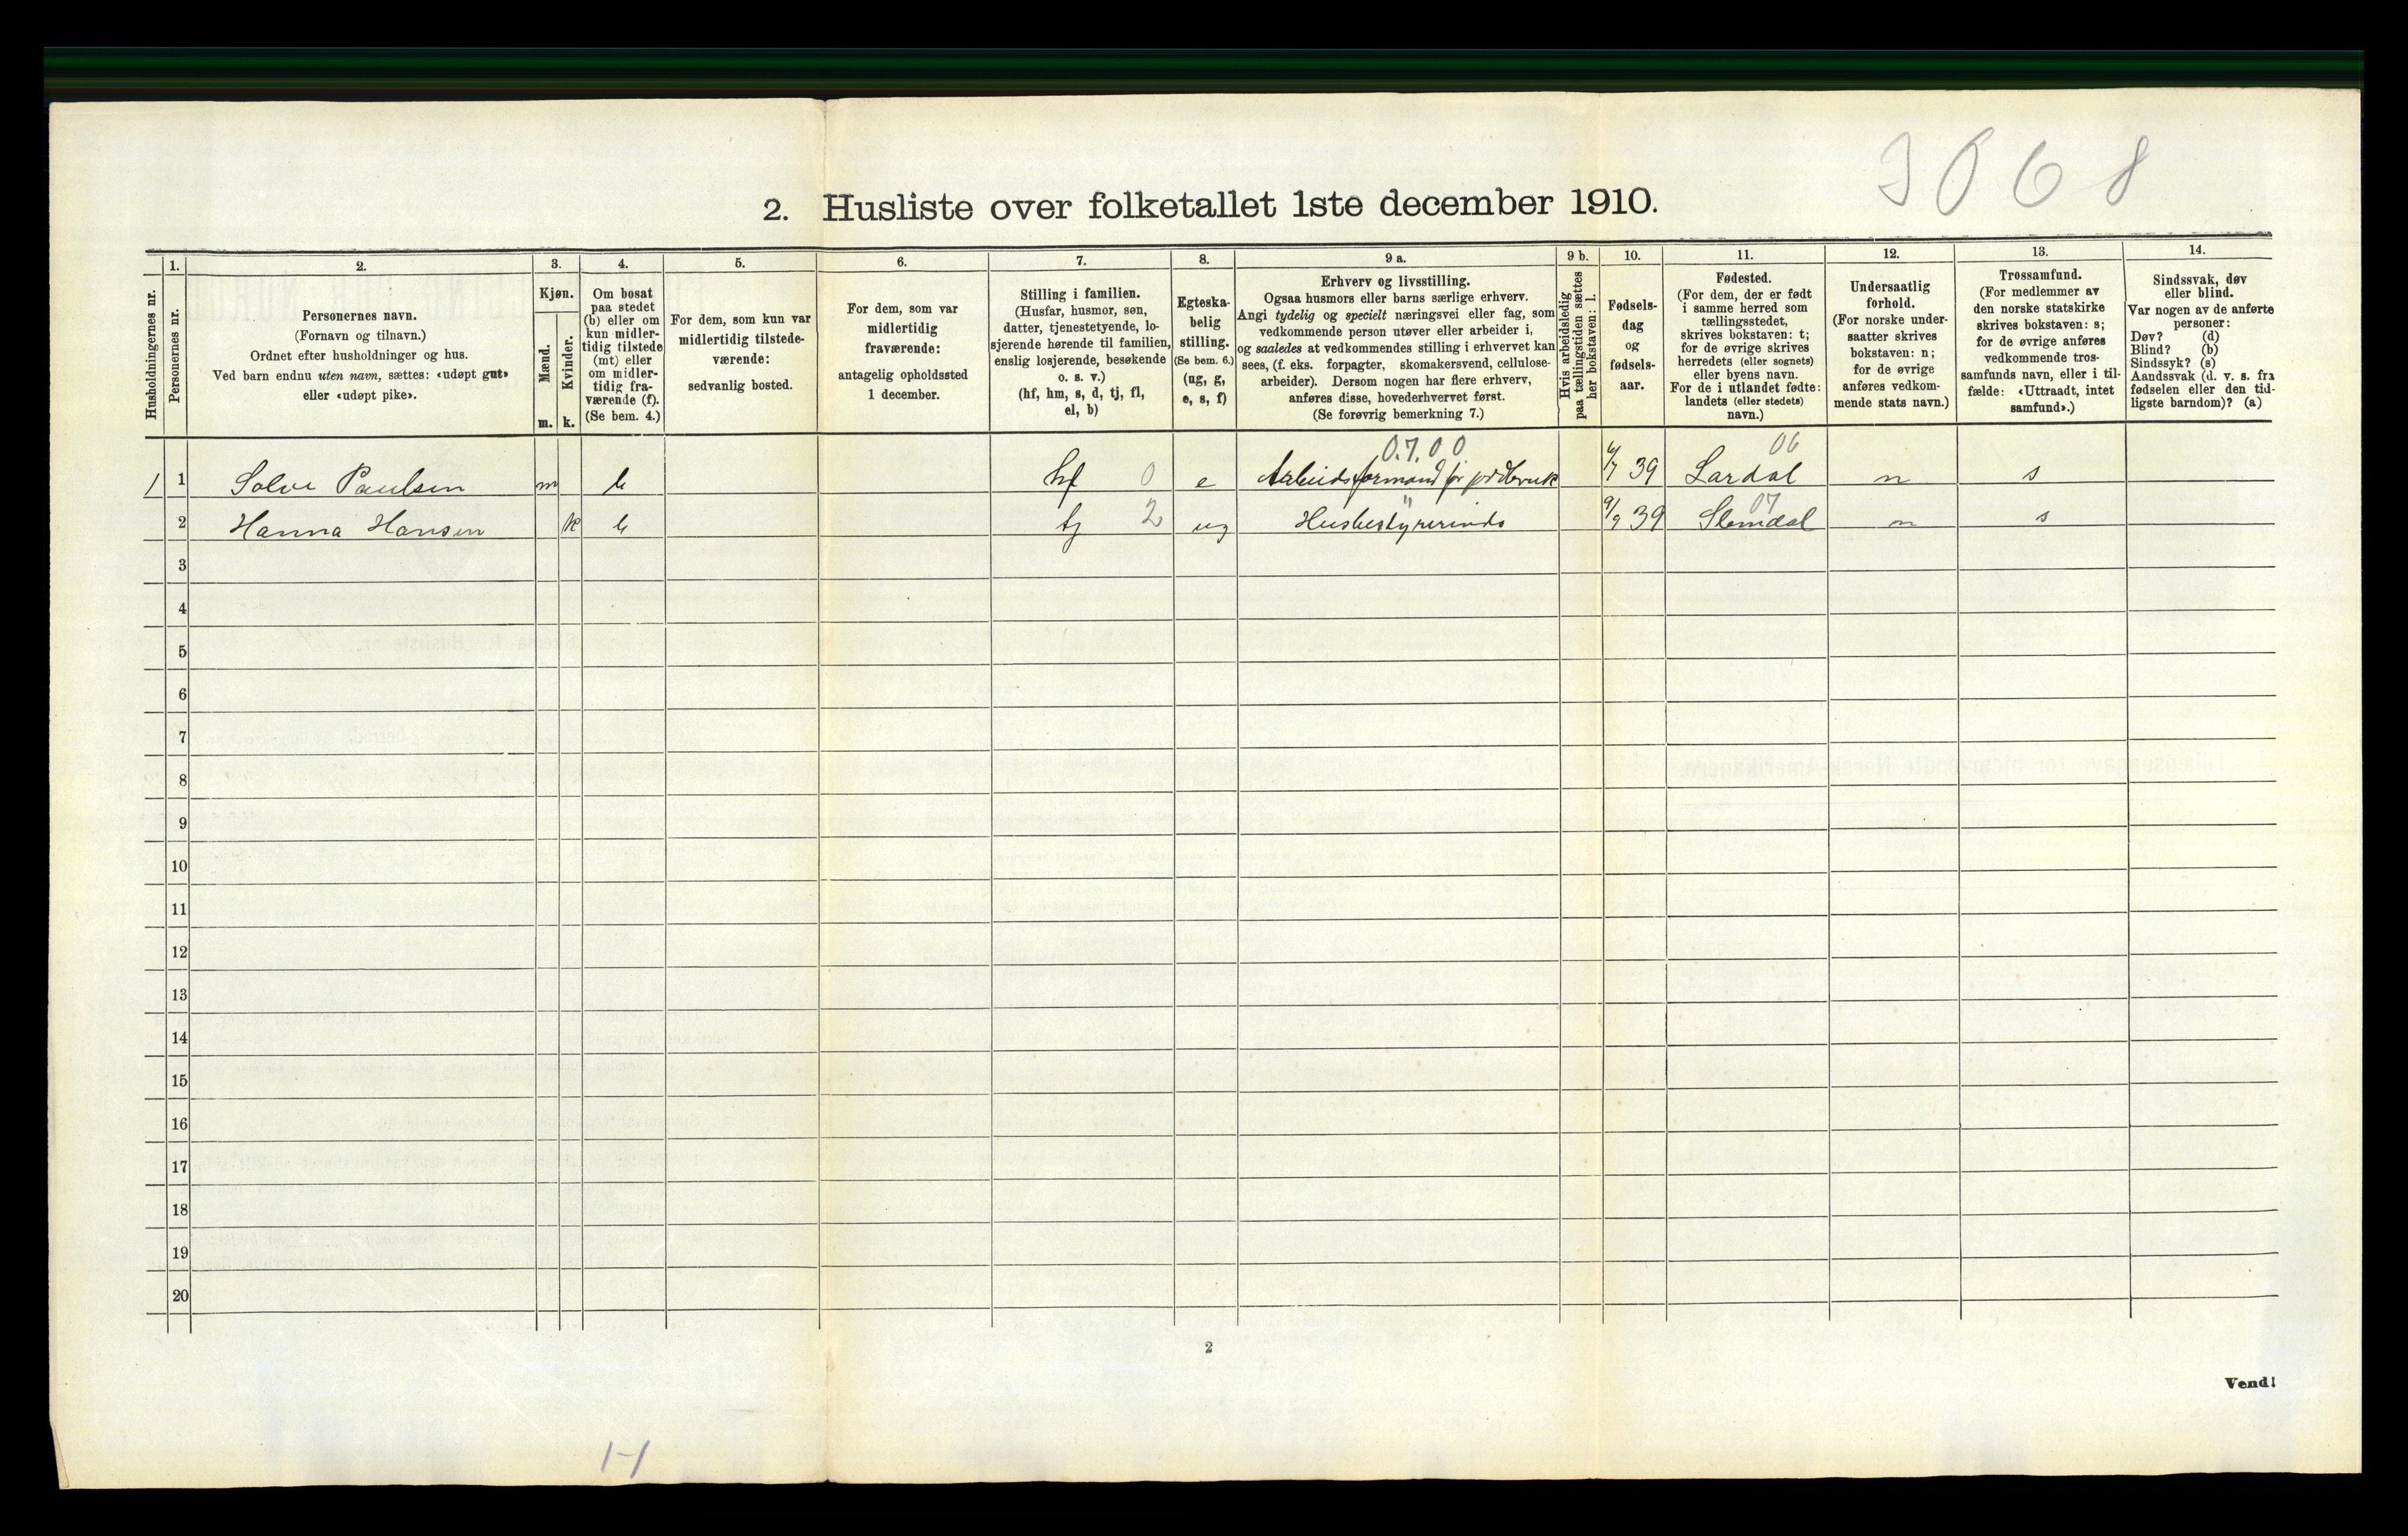 3068
2. Husliste over folketallet 1ste december 1910.
Husholdningernes nr.
1.
Personernes nr.
2.
Personernes navn.
(Fornavn og tilnavn.)
Ordnet efter husholdninger og hus.
Ved barn endnu uten navn, sættes: «udøpt gut»
eller «udøpt pike».
3.
Kjøn.
Mænd.
m.
Kvinder.
k.
4.
Om bosat
paa stedet
(b) eller om
kun midler-
tidig tilstede
(mt) eller
om midler-
tidig fra-
værende (f).
(Se bem. 4.)
5.
For dem, som kun var
midlertidig tilstede-
værende:
sedvanlig bosted.
6.
For dem, som var
midlertidig
fraværende:
antagelig opholdssted
1 december.
7.
Stilling i familien.
(Husfar, husmor, søn,
datter, tjenestetyende, lo-
sjerende hørende til familien,
enslig losjerende, besøkende
o. s. v.)
(hf, hm, s, d, tj, fl,
el, b)
8.
Egteska-
belig
stilling.
(Se bem. 6.)
(ug, g,
e, s, f)
9 a.
Erhverv og livsstilling.
Ogsaa husmors eller barns særlige erhverv.
Angi tydelig og specielt næringsvei eller fag, som
vedkommende person utøver eller arbeider i,
og saaledes at vedkommendes stilling i erhvervet kan
sees, (f. eks. forpagter, skomakersvend, cellulose-
arbeider). Dersom nogen har flere erhverv,
anføres disse, hovederhvervet først.
(Se forøvrig bemerkning 7.)
9 b.
Hvis arbeidsledig
paa tællingstiden sættes
her bokstaven: l.
10.
Fødsels-
dag
og
fødsels-
aar.
11.
Fødested.
(For dem, der er født
i samme herred som
tællingsstedet,
skrives bokstaven: t;
for de øvrige skrives
herredets (eller sognets)
eller byens navn.
For de i utlandet fødte:
landets (eller stedets)
navn.)
12.
Undersaatlig
forhold.
(For norske under-
saatter skrives
bokstaven: n;
for de øvrige
anføres vedkom-
mende stats navn.)
13.
Trossamfund.
(For medlemmer av
den norske statskirke
skrives bokstaven: s;
for de øvrige anføres
vedkommende tros-
samfunds navn, eller i til-
fælde: «Uttraadt, intet
samfund».)
14.
Sindssvak, døv
eller blind.
Var nogen av de anførte
personer:
Døv? (d)
Blind? (b)
Sindssyk? (s)
Aandssvak (d. v. s. fra
fødselen eller den tid-
ligste barndom)? (a)
0.7.00 06
1 1 Solve Paulsen m b hf 0 e Arbeidsformand for jordbruk 39 Lardal n s
" 07
2 Hanna Hansen k b tj 2 ug Husbestyrerinde 9/9 39 Slemdal n s
3
4
5
6
7
8
9
10
11
12
13
14
15
16
17
18
19
20
2
Vend!
1-1